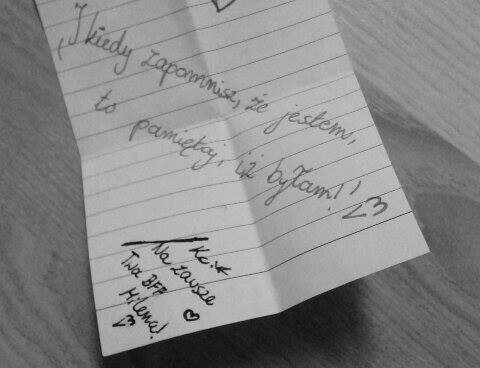 ,,I kiedy zapomnisz, że jestem,
to pamiętaj, iż byłam!" <3
Kc :*
Na zawsze
Twa BFF ♡
Milena!
<3